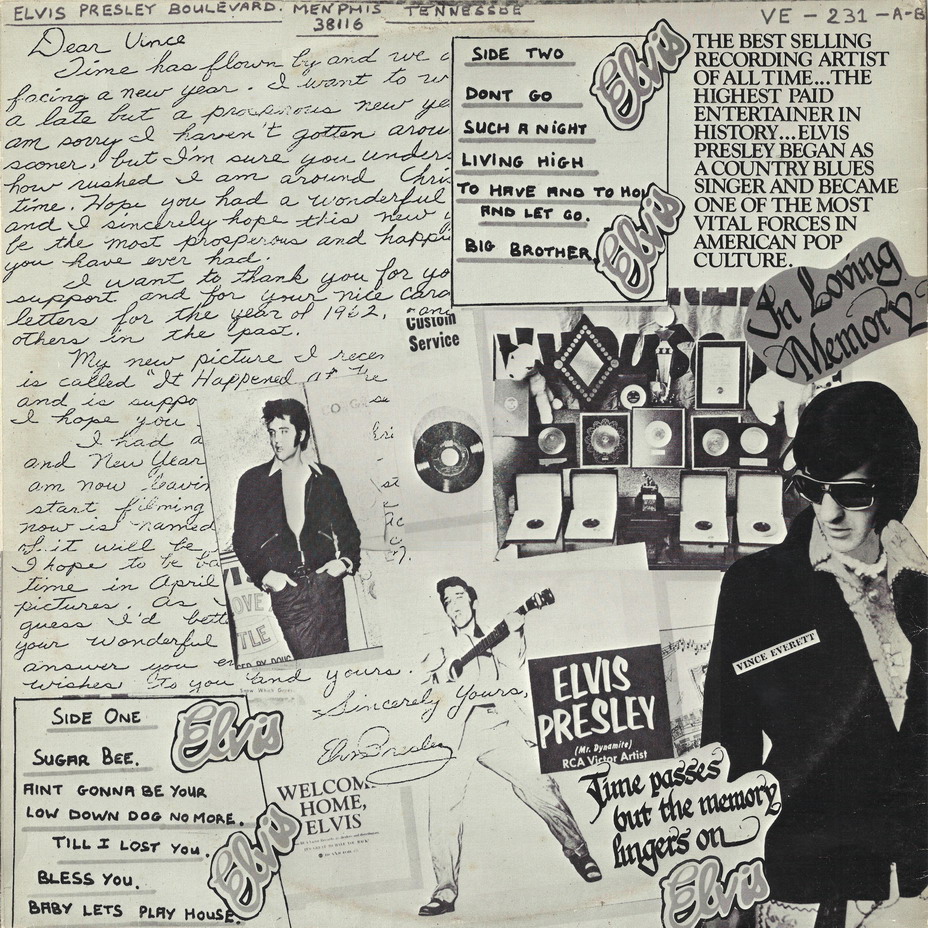 ELVIS PRESLEY BOULEVARD. MEMPHIS TENNESSEE
38116
VE - 231 - A-B
Dear Vince
Time has flown by and we a
facing a new year. I want to w
a late but a prosperous new ye
am sorry I haven't gotten arou
sooner, but I'm sure you unders
how rushed I am around Chri
time. Hope you had a wonderful
and I sincerely hope this new y
be the most prosperous and happi
you have ever had.
I want to thank you for yo
support and for your nice card
letters for the year of 1962, and
others in the past.
My new picture I recen
is called "It Happened at the
and is suppo
I hope you
I had a
and New Year
am now leavin
start filming
now is named
of it will be
I hope to be ba
time in April
pictures. As I
guess I'd bett
your wonderful
answer you
wishes to you and yours.
Sincerely Yours,
Elvis Presley
SIDE TWO
DONT GO
SUCH A NIGHT
LIVING HIGH
TO HAVE AND TO HOL
AND LET GO.
BIG BROTHER
Elvis
Elvis
THE BEST SELLING
RECORDING ARTIST
OF ALL TIME...THE
HIGHEST PAID
ENTERTAINER IN
HISTORY...ELVIS
PRESLEY BEGAN AS
A COUNTRY BLUES
SINGER AND BECAME
ONE OF THE MOST
VITAL FORCES IN
AMERICAN POP
CULTURE.
In Loving
Memory
Custom
Service
VINCE EVERETT
ELVIS
PRESLEY
(Mr. Dynamite)
RCA Victor Artist
Time passes
but the memory
lingers on
Elvis
SIDE ONE
SUGAR BEE.
AINT GONNA BE YOUR
LOW DOWN DOG NO MORE.
TILL I LOST YOU.
BLESS YOU.
BABY LETS PLAY HOUSE.
Elvis
Elvis
WELCOM
HOME,
ELVIS